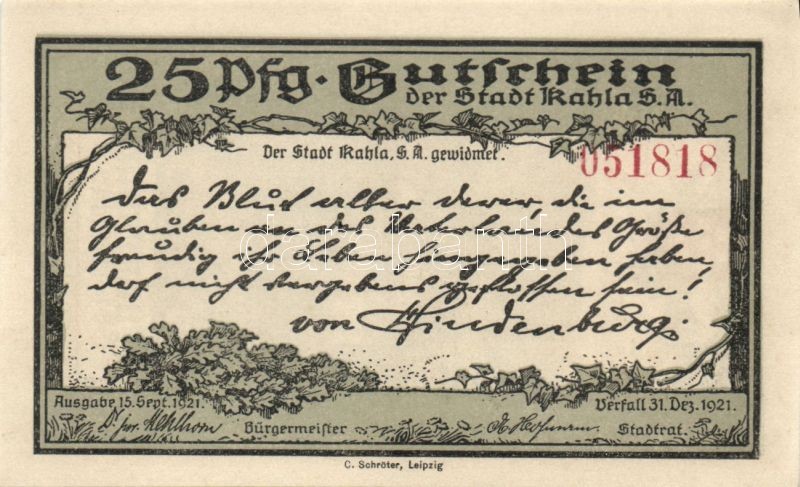 25 Pfg. Gutschein
der Stadt Kahla S. A.
Der Stadt Kahla, S. A. gewidmet.
051818
Das Blut aller derer, die im
Glauben an des Vaterlandes Größe
freudig ihr Leben hingegeben haben,
darf nicht vergebens geflossen sein!
von Hindenburg.
databanth
Ausgabe 15. Sept. 1921.
Verfall 31. Dez. 1921.
Bürgermeister
Stadtrat.
C. Schröter, Leipzig